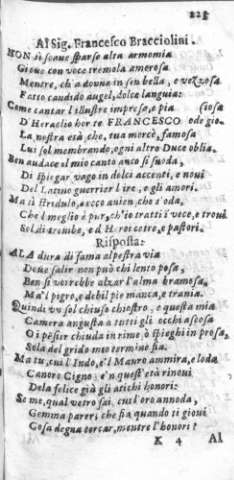 225
Al Sig. Francesco Bracciolini.
NON sì soaue sparso alta armonia
Gioue con voce tremola amorosa
Mentre, ch'a donna in sen bella, e vezzosa
Fatto candido augel, dolce languia:
Come cantar l'illustre impresa, e pia
D'Heraclio hor te FRANCESCO ode gio
La nostra età, che, tua mercè, famosa
Lui sol membrando, ogni altro Duce oblia.
Ben audace il mio canto anco si snoda,
Di spiegar vago in dolci accenti, e noui
Del Latino guerrier l'ire, e gli amori.
Ma sì stridulo, e auien, che s'oda,
Che'l meglio è pur, ch'io tratti i vece, e troui
Sol di e d'H cetre, e pastori.
Risposta.
ALA dura di fama alpestra via
Deue salir non può chi lento posa,
Ben si vorrebbe alzar l'alma bramosa,
Ma'l pigro, e debil piè manca, e trauia.
Quindi vò sol chiuso chiostro, e questa mia
Camera angusta a tutti gli occhi ascosa
O i pēsier chiuda in rime, ò spieghi in prosa,
Sola del grido meo termine sia.
Ma tu, cui l'Indo, e'l Mauro ammira, e loda
Canoro Cigno, e'n quest'età rinoui
Dela felice già gli antichi honori:
Se me, qual vetro sai, cui l'oro annoda,
Gemma parer; che fia quando ti gioui
Cosa degna cercar, mentre l'honori?
K 4 Al